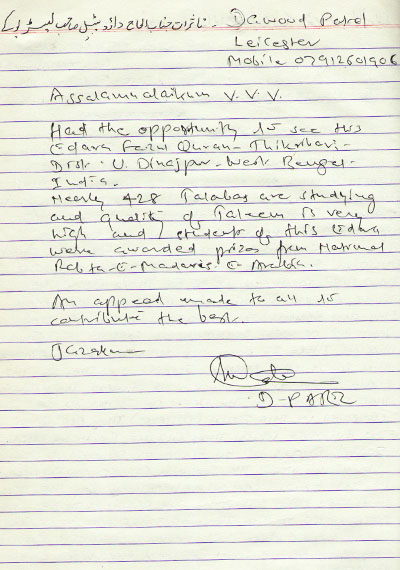 تاثرات جناب الحاج داؤد پٹیل صاحب لیسٹر یوکے - Dawood Patel
Leicester
Mobile 07912601906
Assalamualaikum V.V.V.
Had the opportunity to see this
Edara Faizul Quran - Thikribari -
Distt. U. Dinajpur. West Bengal -
India.
Nearly 428 Talabas are studying
and quality of Taleem is very
high and 7 students of this Edara
were awarded prizes from National
Rabta-E-Madaris-E-Arabia.
An appeal made to all to
contribute the best.
Jazakum
D-PATEL